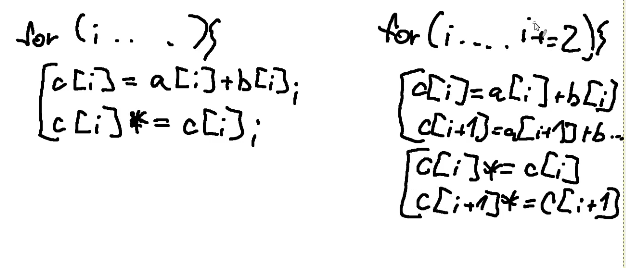 for (i . . . .){
c[i] = a[i]+b[i];
c[i] *= c[i];
for (i.... i+=2){
c[i]=a[i]+b[i]
c[i+1]=a[i+1]+b...
c[i]*= c[i]
c[i+1]*=c[i+1]